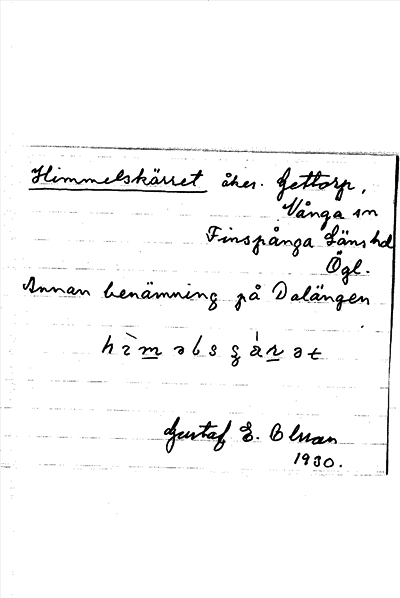 Himmelskärret åker. Gettorp,
Vånga sn
Finspånga Läns hd
Ögl.
Annan benämning på Dalängen
Gustaf E. Olsson
1930.